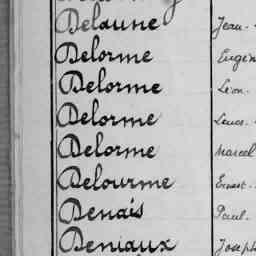 Delaune Jean.
Delorme Eugèn
Delorme Léon.
Delorme Louis.
Delorme Marcel
Delourme Ernest.
Denais Paul.
Deniaux Joseph